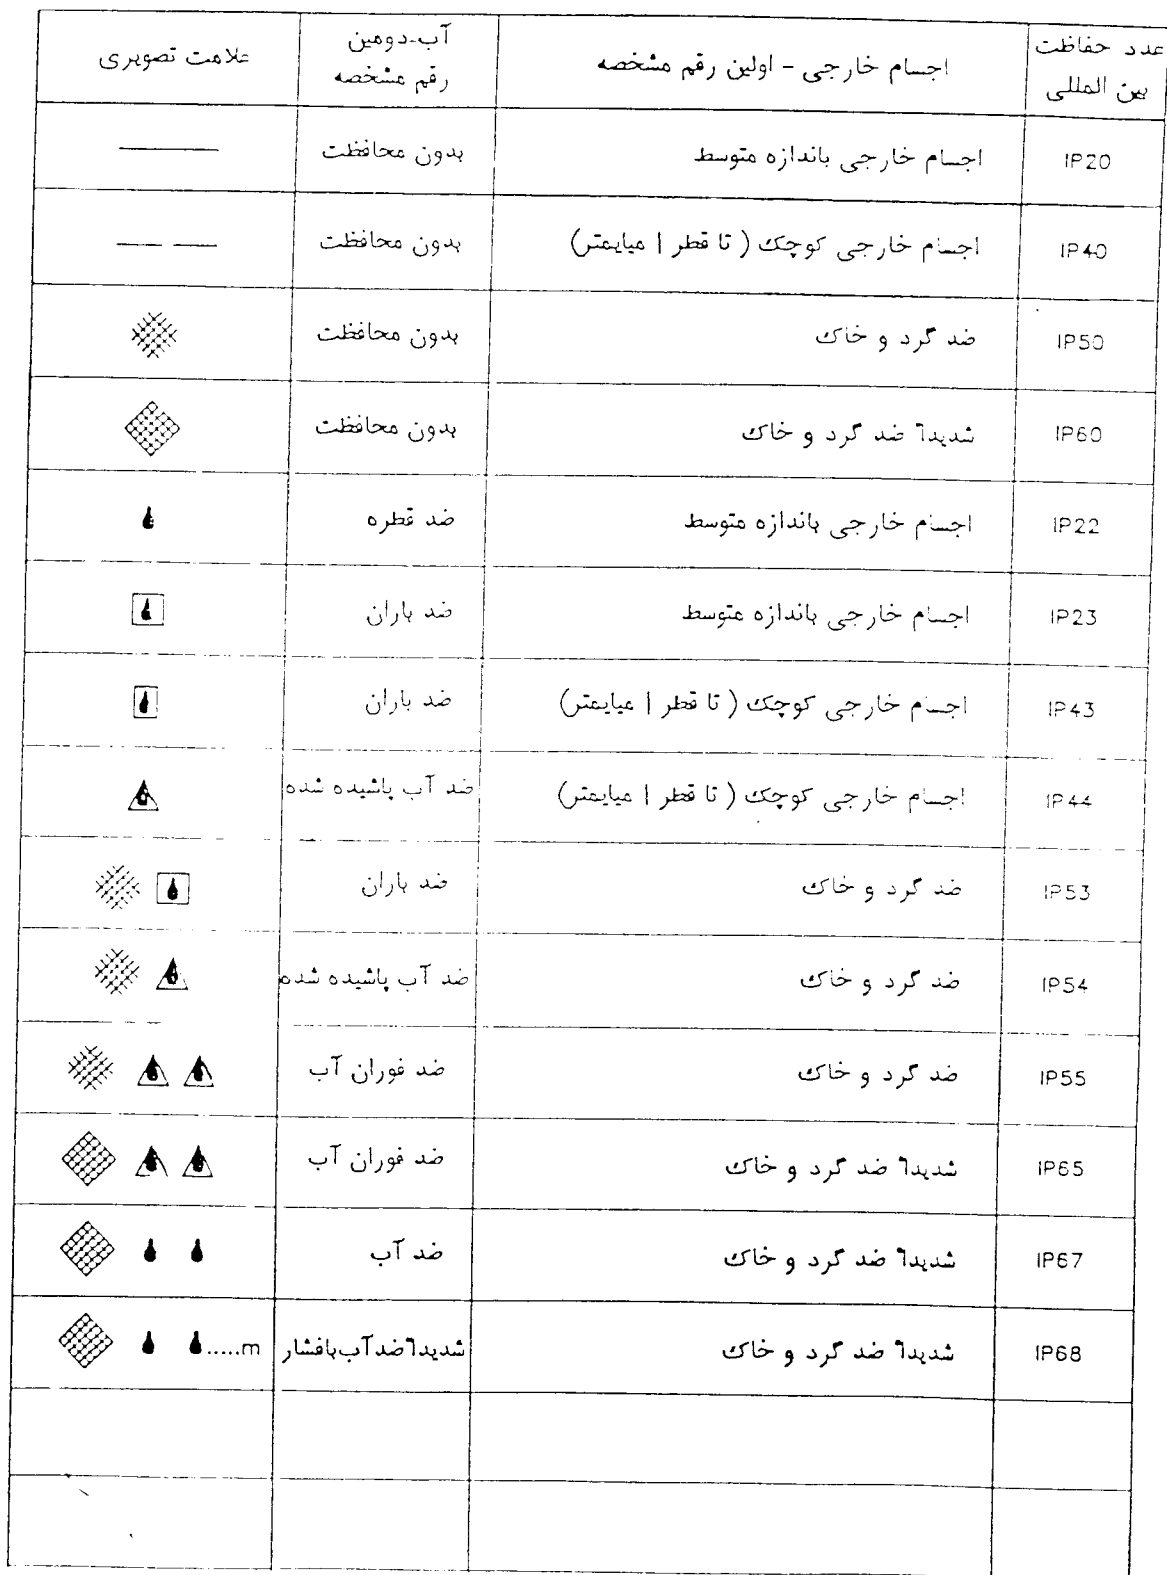 عدد حفاظت بین المللی | اجسام خارجی - اولین رقم مشخصه | آب-دومین رقم مشخصه | علامت تصویری
IP20 | اجسام خارجی باندازه متوسط | بدون محافظت
IP40 | اجسام خارجی کوچک ( تا قطر ا میایمتر) | بدون محافظت
IP50 | ضد گرد و خاک | بدون محافظت
IP60 | شدیدآ ضد گرد و خاک | بدون محافظت
IP22 | اجسام خارجی باندازه متوسط | ضد قطره
IP23 | اجسام خارجی باندازه متوسط | ضد باران
IP43 | اجسام خارجی کوچک ( تا قطر ا میایمتر) | ضد باران
IP44 | اجسام خارجی کوچک ( تا قطر ا میایمتر) | ضد آب پاشیده شده
IP53 | ضد گرد و خاک | ضد باران
IP54 | ضد گرد و خاک | ضد آب پاشیده شده
IP55 | ضد گرد و خاک | ضد فوران آب
IP65 | شدیدآ ضد گرد و خاک | ضد فوران آب
IP67 | شدیدآ ضد گرد و خاک | ضد آب
IP68 | شدیدآ ضد گرد و خاک | شدیدآ ضد آب بافشار | .....m